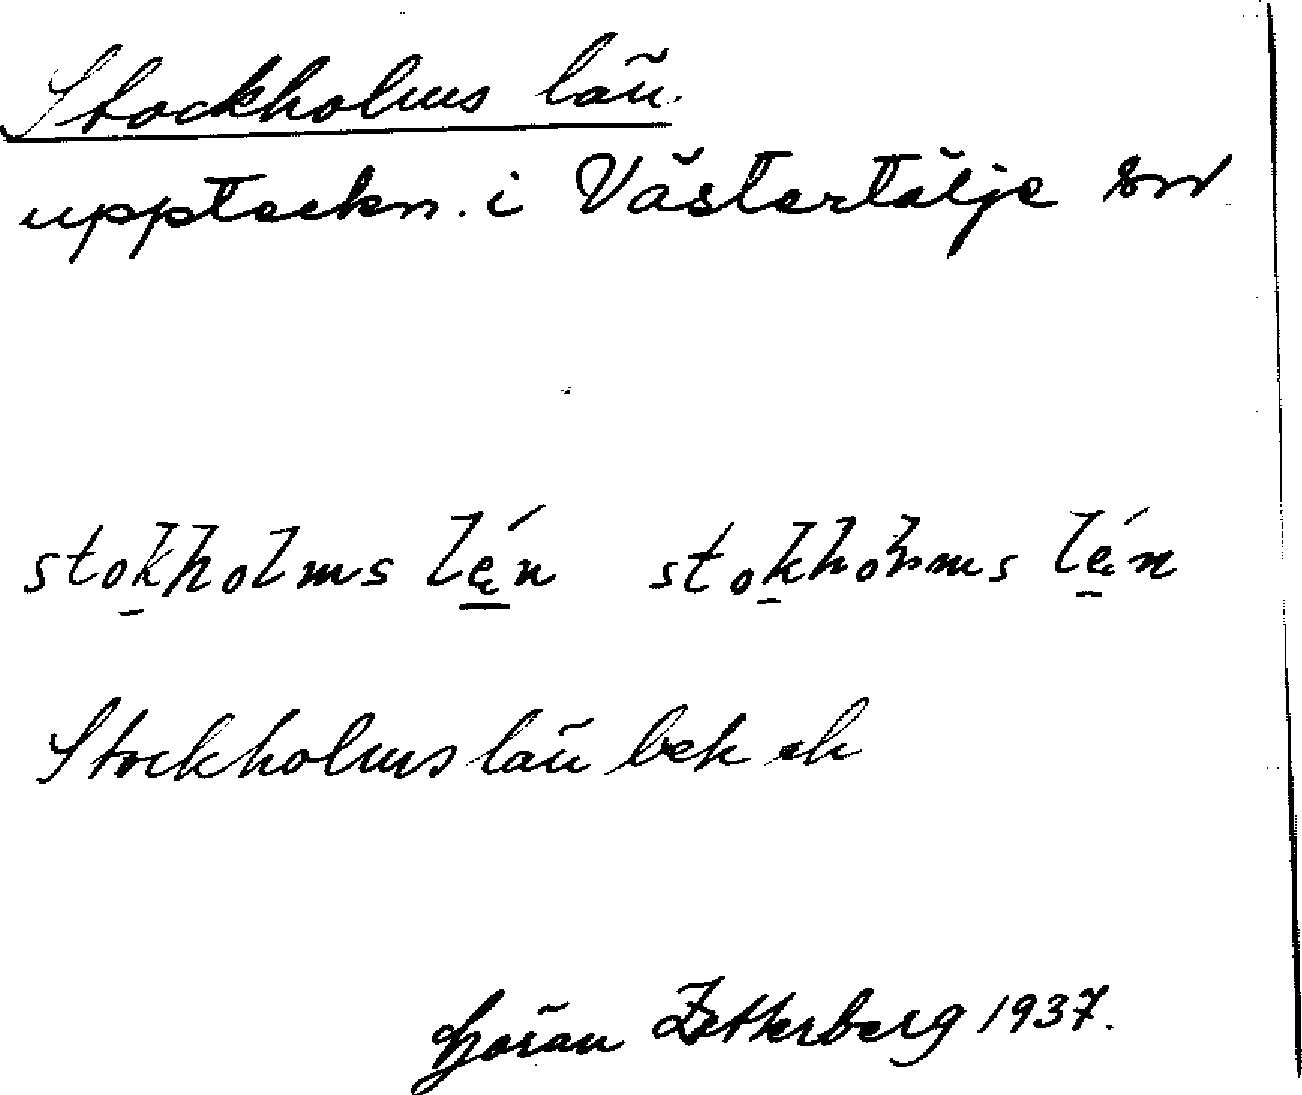 Stockholms län.
uppteckn. i Västertälje sn
stokholms lę́n stokholmms lę́n
Stockholms län bek eh
Göran Zetterberg 1937.